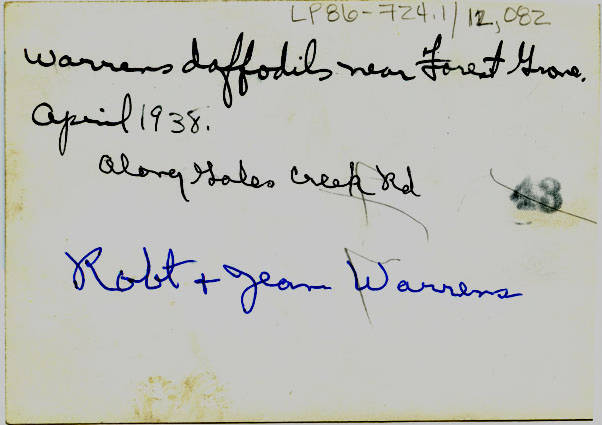 LP86-724.1/12,082
Warrens daffodils near Forest Grove.
April 1938.
Along Gales Creek Rd
43
Robt + Jean Warrens